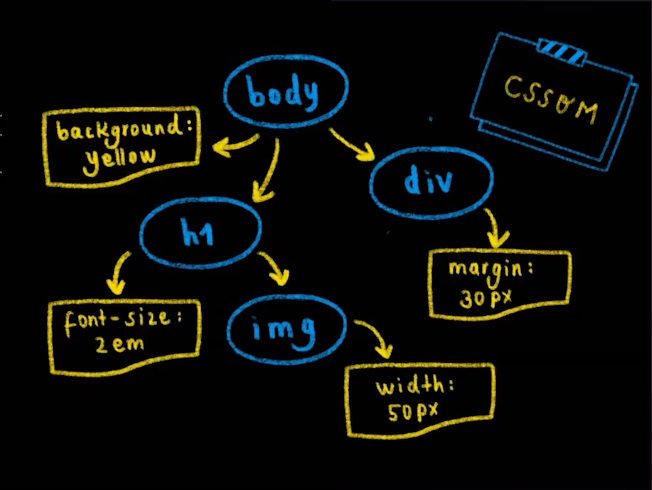 body
CSSOM
background:
yellow
div
h1
margin:
30px
font-size:
2em
img
width:
50px